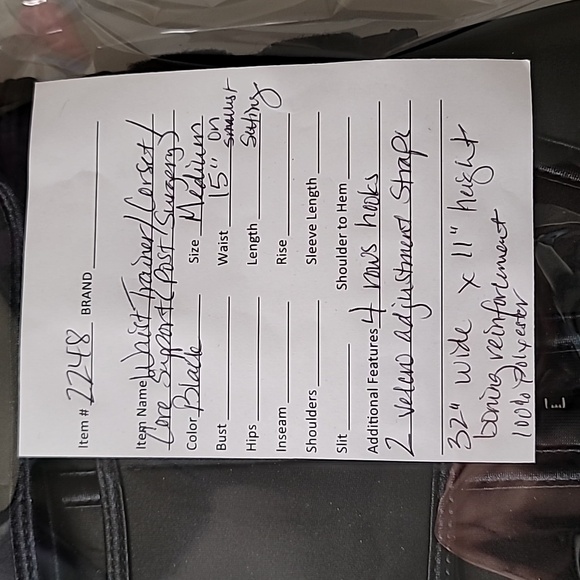 Item # 2248 BRAND
Item Name Waist Trainer/Corset/
Core Support (Post Surgery)
Color Black Size Medium
Bust Waist 15" on smallest
Hips Length setting
Inseam Rise
Shoulders Sleeve Length
Slit Shoulder to Hem
Additional Features 4 rows hooks
2 velcro adjustment straps
32" wide x 11" height
boning reinforcement
100% polyester